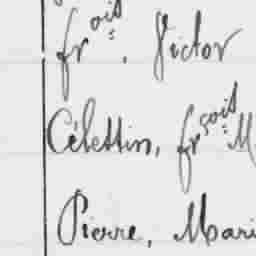 fr^ois:, Victor
Célestin, fr^çois: M
Pierre, Mari